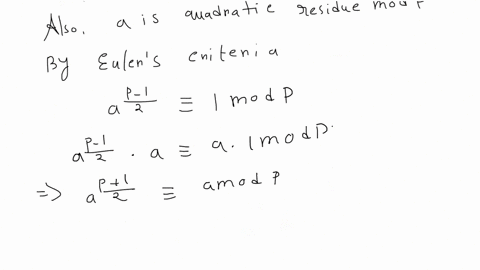 Also, a is quadratic residue mod P
By Euler's criteria
a^{\frac{P-1}{2}} ≡ 1 mod P
a^{\frac{P-1}{2}} . a ≡ a. 1 mod P.
=> a^{\frac{P+1}{2}} ≡ a mod P